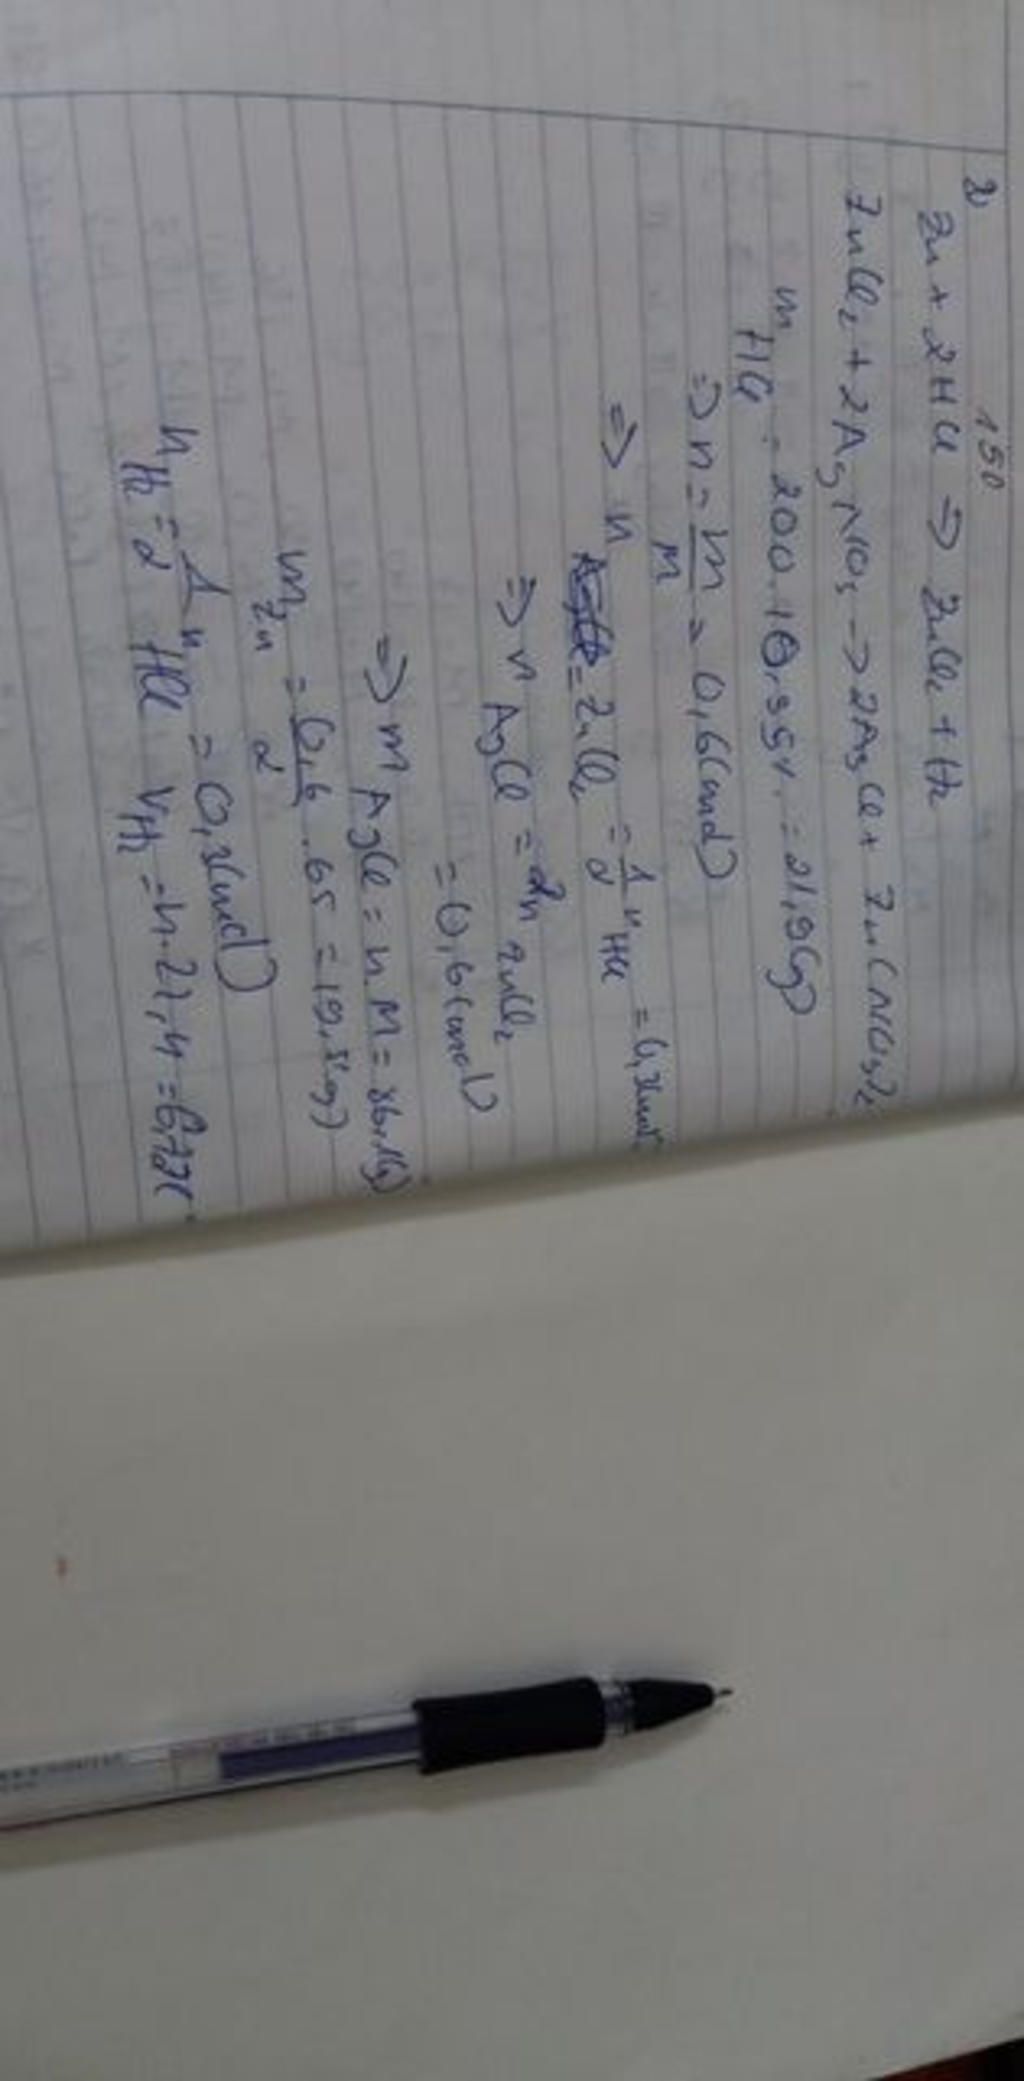 150
2)
Zn + 2HCl => ZnCl₂ + H₂
ZnCl₂ + 2AgNO₃ -> 2AgCl + Zn(NO₃)₂
m HCl = 200.10,95% = 21,9(g)
=> n = m/M = 0,6(mol)
=> n ZnCl₂ = 1/2 n HCl = 0,3(mol
=> n AgCl = 2n ZnCl₂
= 0,6(mol)
=> m AgCl = n.M = 86,1(g)
m Zn = 0,6/2 . 65 = 19,5(g)
n H₂ = 1/2 n HCl = 0,3(mol)
V H₂ = n.22,4 = 6,72(